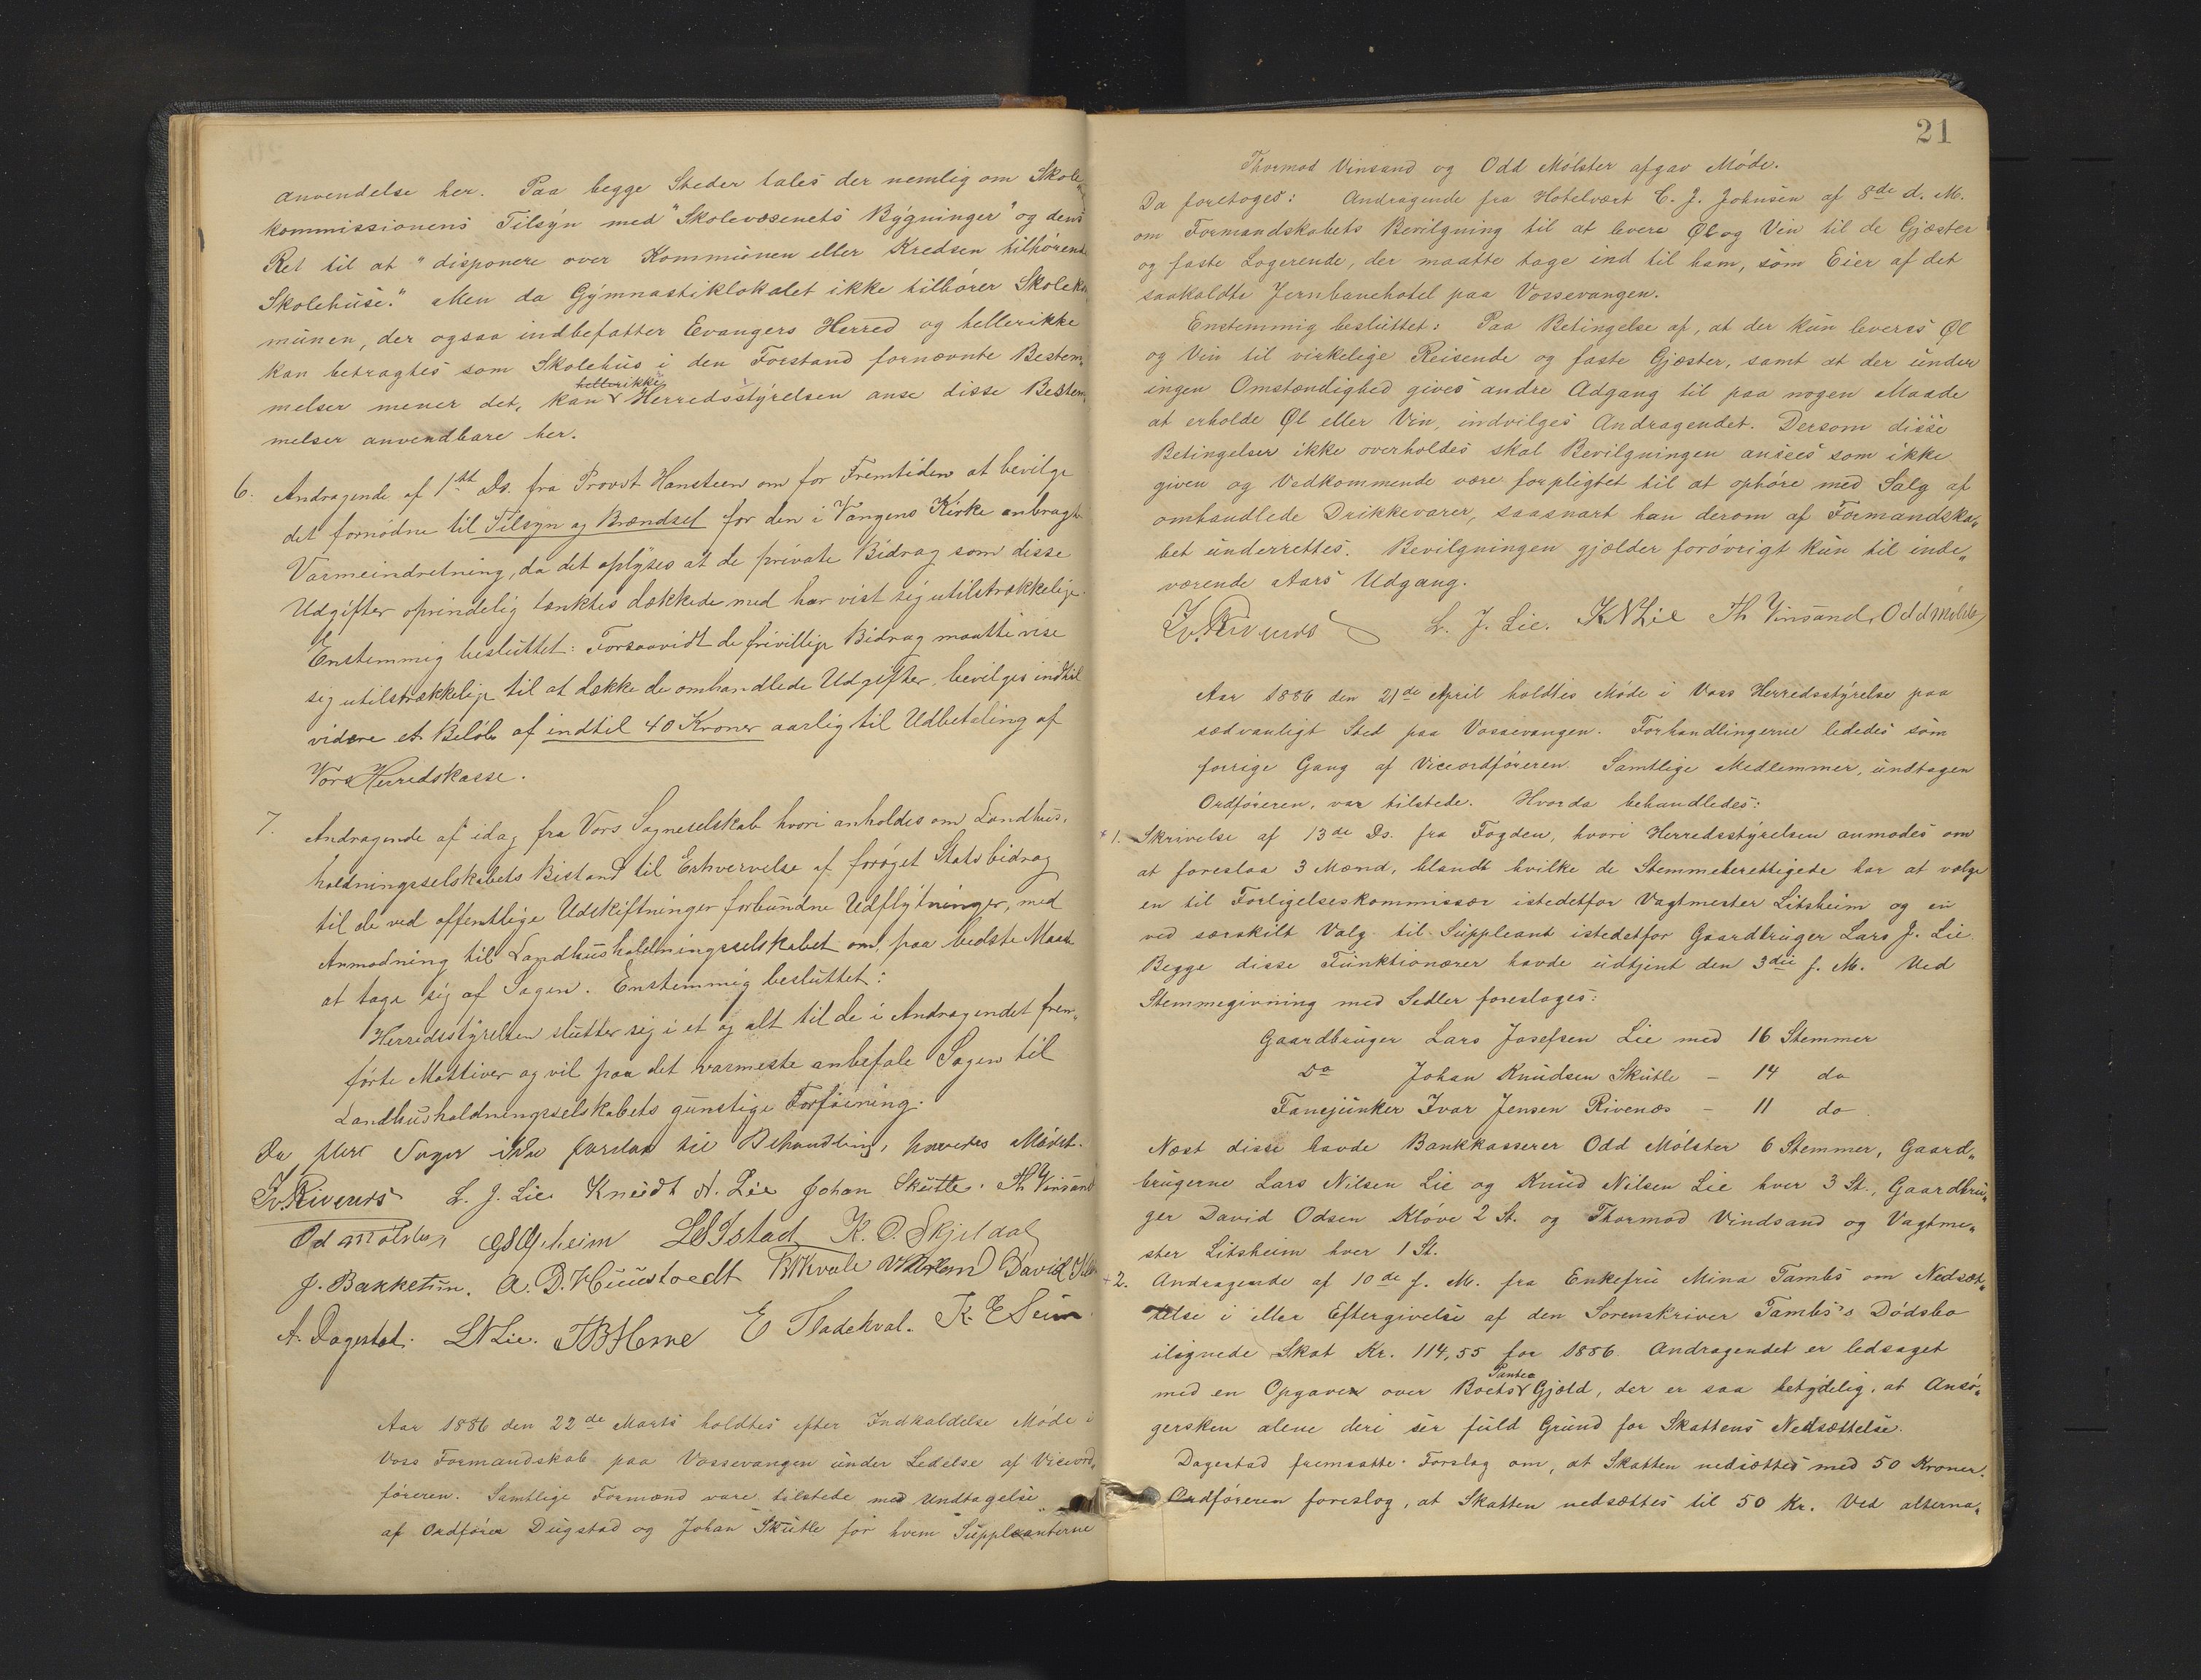 anvendelse her. Paa begge Steder tales der nemlig om Skole„
kommissionens Tilsyn med "Skolevæsenets Bygninger" og dens
Ret til at "disponere over Kommunen eller Kredsen tilhørende
Skolehuse." Men da Gymnastiklokalet ikke tilhører Skoleko
munen, der ogsaa indbefatter Evangers Herred og hellerikke
kan betragtes som Skolehus i den Forstand fornævnte Bestem„
melser mener det, kan hellerikke Herredsstyrelsen anse disse Bestem„
melser anvendbare her.
6. Andragende af 1ste Ds. fra Provst Hansteen om for Fremtiden at bevilge
det fornødne til Tilsyn og Brændsel for den i Vangens Kirke anbragte
Varmeindretning, da det oplyses at de private Bidrag som disse
Udgifter oprindelig tænktes dækkede med har vist sig utilstrækkelige.
Enstemmig besluttet: Forsaavidt de frivillige Bidrag maatte vise
sig utilstrækkelige til at dække de omhandlede Udgifter, bevilges indtil
videre et Beløb af indtil 40 Kroner aarlig til Udbetaling af
Vors Herredskasse.
7. Andragende af idag fra Vors Sogneselskab hvori anholdes om Landhus„
holdningsselskabets Bistand til Erhvervelse af forøget Statsbidrag
til de ved offentlige Udskiftninger forbundne Udflytninger, med
Anmodning til Landhusholdningsselskabet om, paa bedste Maade
at tage sig af Sagen. Enstemmig besluttet:
Herredsstyrelsen slutter sig i et og alt til de i Andragendet frem„
førte Mottiver og vil paa det varmeste anbefale Sagen til
Landhusholdningsselskabets gunstige Forføining.
Da flere Sager ikke forelaa til Behandling, hævedes Mødet.
Iv. Rivenæs L. J. Lie Knudt N. Lie Johan Skutle. Th Vinsand
Od Mølster LSIstad K. O. Skjeldal
J. Bakketun. A. D. Huustvedt David
A. Dagestad. LNLie. E Fladekval. K. E Seim
Aar 1886 den 22de Marts holdtes efter Indkaldelse Møde i
Voss Formandskab paa Vossevangen under Ledelse af Viceord„
føreren. Samtlige Formænd vare tilstede med Undtagelse
af Ordfører Dugstad og Johan Skutle for hvem Suppleanterne
21
Thormod Vinsand og Odd Mølster afgav Møde.
Da foretoges: Andragende fra Hotelvært C. J. Johnsen af 8de d. M.
om Formandskabets Bevilgning til at levere Øl og Vin til de Gjæster
og faste Logerende, der maatte tage ind til ham, som Eier af det
saakaldte Jernbanehotel paa Vossevangen.
Enstemmig besluttet: Paa Betingelse af, at der kun leveres Øl
og Vin til virkelige Reisende og faste Gjæster, samt at der under
ingen Omstændighed gives andre Adgang til paa nogen Maade
at erholde Øl eller Vin, indvilges Andragendet. Dersom disse
Betingelser ikke overholdes skal Bevilgningen ansees som ikke
given og Vedkommende være forpligtet til at ophøre med Salg af
omhandlede Drikkevarer, saasnart han derom af Formandska„
bet underrettes. Bevilgningen gjælder forøvrigt kun til inde„
værende Aars Udgang.
Iv. Rivenæs L. J. Lie. KNLie Th Vinsand, Odd Mølster
Aar 1886 den 21de April holdtes Møde i Voss Herredsstyrelse paa
sædvanligt Sted paa Vossevangen. Forhandlingerne lededes som
forrige Gang af Viceordføreren. Samtlige Medlemmer, undtagen
Ordføreren, var tilstede. Hvorda behandledes:
+ 1. Skrivelse af 13de Ds. fra Fogden, hvori Herredsstyrelsen anmodes om
at foreslaa 3 Mænd, blandt hvilke de Stemmeberettigede har at vælge
en til Forligelseskommissær istedetfor Vagtmester Litsheim og en
ved særskilt Valg til Suppleant istedetfor Gaardbruger Lars J. Lie.
Begge disse Funktionærer havde udtjent den 3die f. M. Ved
Stemmegivning med Sedler foresloges:
Gaardbruger Lars Josefsen Lie med 16 Stemmer
Do Johan Knudsen Skutle – 14 do
Fanejunker Ivar Jensen Rivenæs – 11 do.
Næst disse havde Bankkasserer Odd Mølster 6 Stemmer, Gaard„
brugerne Lars Nilsen Lie og Knud Nilsen Lie hver 3 St., Gaardbru„
ger David Odsen Kløve 2 St. og Thormod Vindsand og Vagtme„
ster Litsheim hver 1 St.
+ 2. Andragende af 10de f. M. fra Enkefru Mina Tambs om Nedsæt„
telse i eller Eftergivelse af den Sorenskriver Tambs's Dødsbo
ilignede Skat Kr. 114,55 for 1886. Andragendet er ledsaget
med en Opgave over Boets Pante Gjæld, der er saa betydelig, at Ansø„
gersken alene deri ser fuld Grund for Skattens Nedsættelse.
Dagestad fremsatte Forslag om, at Skatten nedsættes med 50 Kroner.
Ordføreren foreslog, at Skatten nedsættes til 50 Kr. Ved alterna„